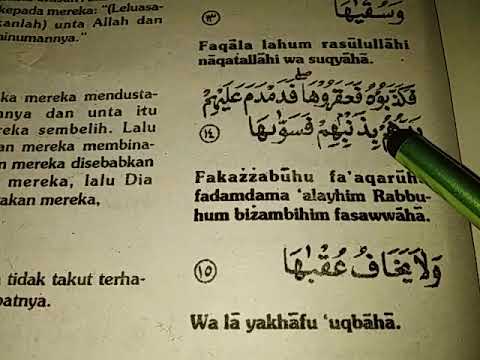 kepada mereka: "(Leluasa-
kanlah) unta Allah dan
minumannya."
ka mereka mendusta-
nnya dan unta itu
reka sembelih. Lalu
an mereka membina-
n mereka disebabkan
mereka, lalu Dia
akan mereka,
tidak takut terha-
patnya.
وَسُقْيٰهَا ١٣
Faqāla lahum rasūlullāhi
nāqatallāhi wa suqyāhā.
فَكَذَّبُوهُ فَعَقَرُوهَاۖ فَدَمْدَمَ عَلَيْهِمْ
رَبُّهُمْ بِذَنْبِهِمْ فَسَوّٰىهَا ١٤
Fakażżabūhu fa'aqarūhā
fadamdama 'alayhim Rabbu-
hum biżambihim fasawwāhā.
وَلَا يَخَافُ عُقْبٰهَا ١٥
Wa lā yakhāfu 'uqbāhā.